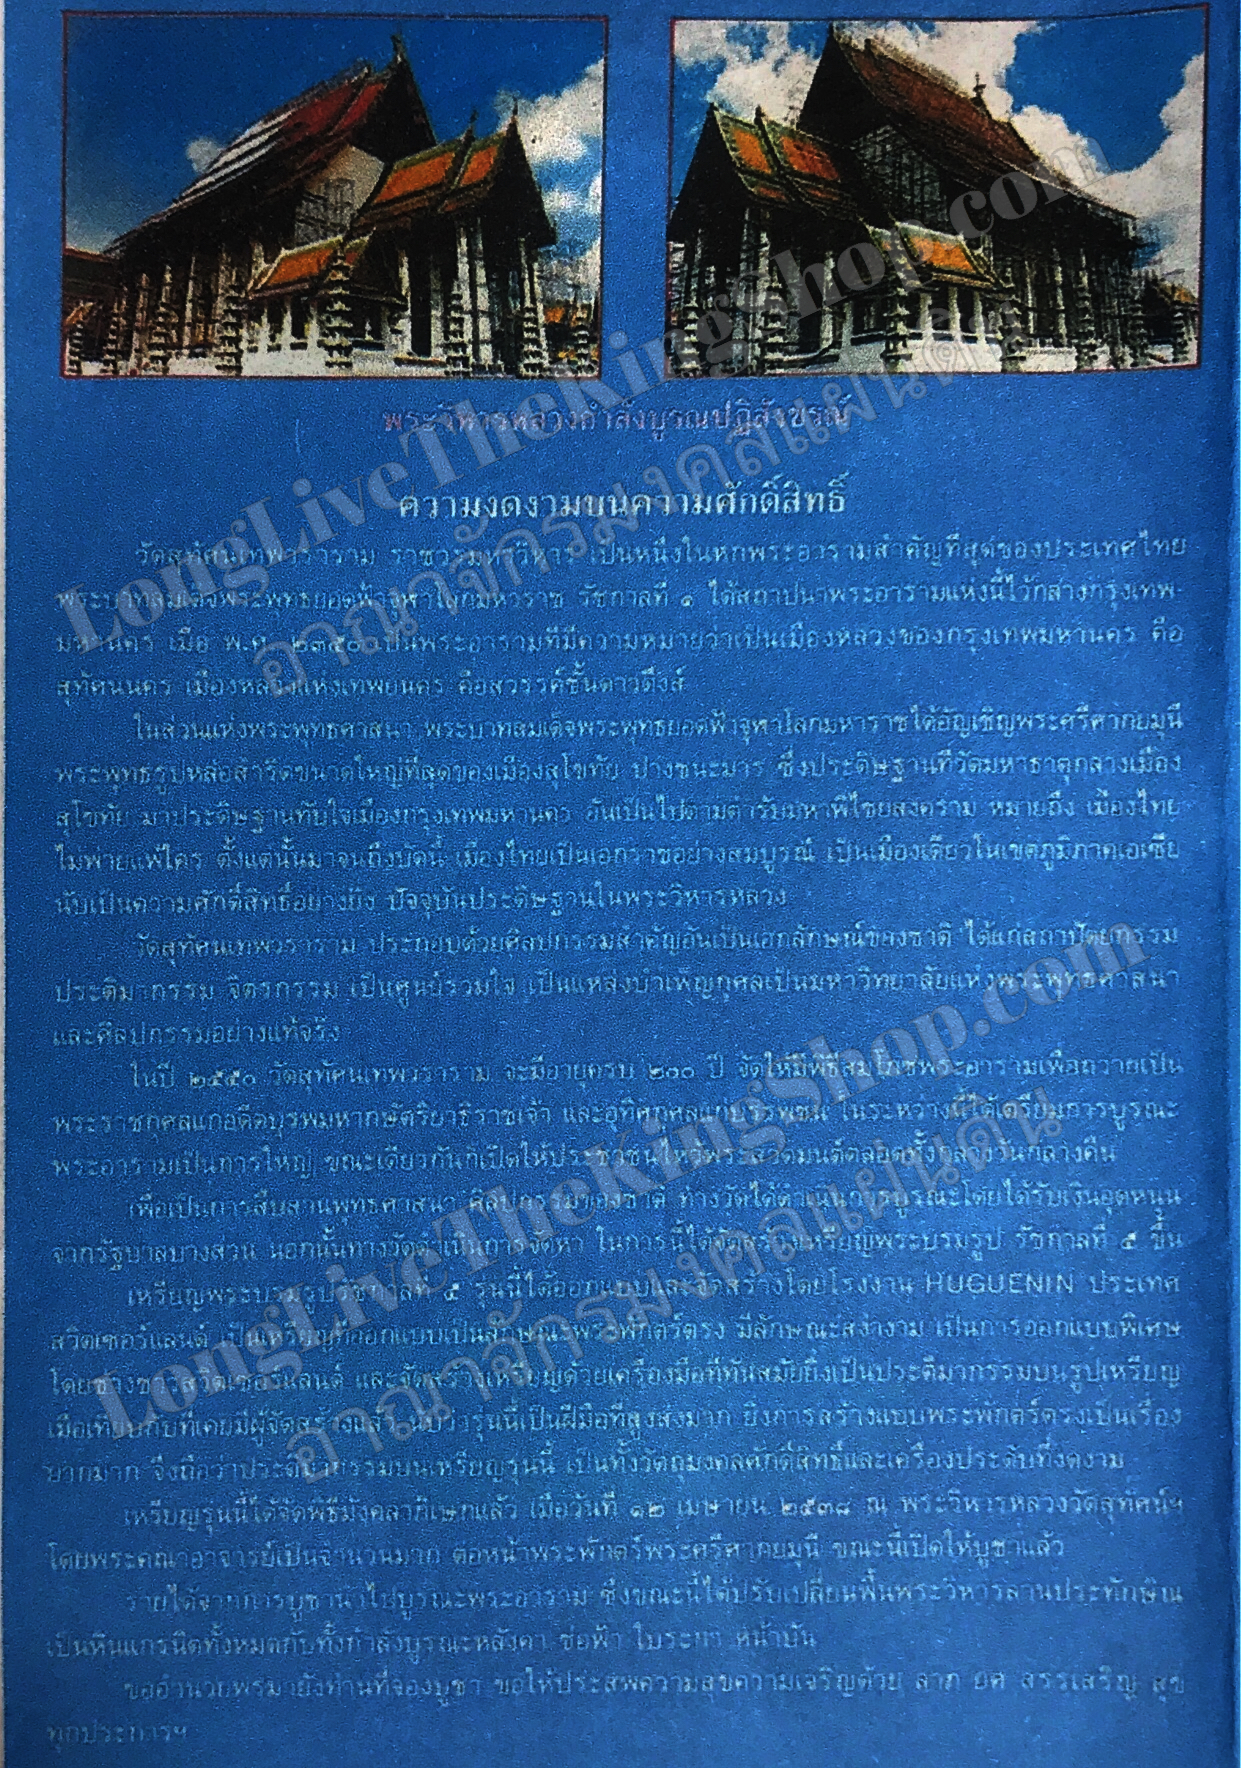 พระวิหารหลวงกำลังบูรณปฏิสังขรณ์
ความงดงามบนความศักดิ์สิทธิ์
วัดสุทัศนเทพวราราม ราชวรมหาวิหาร เป็นหนึ่งในหกพระอารามสำคัญที่สุดของประเทศไทย
พระบาทสมเด็จพระพุทธยอดฟ้าจุฬาโลกมหาราช รัชกาลที่ ๑ ได้สถาปนาพระอารามแห่งนี้ไว้กลางกรุงเทพ-
มหานคร เมื่อ พ.ศ. ๒๓๕๐ เป็นพระอารามที่มีความหมายว่าเป็นเมืองหลวงของกรุงเทพมหานคร คือ
สุทัศนนคร เมืองหลวงแห่งเทพยนคร คือสวรรค์ชั้นดาวดึงส์
ในส่วนแห่งพระพุทธศาสนา พระบาทสมเด็จพระพุทธยอดฟ้าจุฬาโลกมหาราชได้อัญเชิญพระศรีศากยมุนี
พระพุทธรูปหล่อสำริดขนาดใหญ่ที่สุดของเมืองสุโขทัย ปางชนะมาร ซึ่งประดิษฐานที่วัดมหาธาตุกลางเมือง
สุโขทัย มาประดิษฐานทับใจเมืองกรุงเทพมหานคร อันเป็นไปตามตำรับมหาพิไชยสงคราม หมายถึง เมืองไทย
ไม่พ่ายแพ้ใคร ตั้งแต่นั้นมาจนถึงบัดนี้ เมืองไทยเป็นเอกราชอย่างสมบูรณ์ เป็นเมืองเดียวในเขตภูมิภาคเอเซีย
นับเป็นความศักดิ์สิทธิ์อย่างยิ่ง ปัจจุบันประดิษฐานในพระวิหารหลวง
วัดสุทัศนเทพวราราม ประกอบด้วยศิลปกรรมสำคัญอันเป็นเอกลักษณ์ของชาติ ได้แก่สถาปัตยกรรม
ประติมากรรม จิตรกรรม เป็นศูนย์รวมใจ เป็นแหล่งบำเพ็ญกุศลเป็นมหาวิทยาลัยแห่งพระพุทธศาสนา
และศิลปกรรมอย่างแท้จริง
ในปี ๒๕๕๐ วัดสุทัศนเทพวราราม จะมีอายุครบ ๒๐๐ ปี จัดให้มีพิธีสมโภชพระอารามเพื่อถวายเป็น
พระราชกุศลแก่อดีตบุรพมหากษัตริยาธิราชเจ้า และอุทิศกุศลแก่บรรพชน ในระหว่างนี้ได้เตรียมการบูรณะ
พระอารามเป็นการใหญ่ ขณะเดียวกันก็เปิดให้ประชาชนไหว้พระสวดมนต์ตลอดทั้งกลางวันกลางคืน
เพื่อเป็นการสืบสานพุทธศาสนา ศิลปกรรมของชาติ ทางวัดได้ดำเนินการบูรณะโดยได้รับเงินอุดหนุน
จากรัฐบาลบางส่วน นอกนั้นทางวัดดำเนินการจัดหา ในการนี้ได้จัดสร้างเหรียญพระบรมรูป รัชกาลที่ ๕ ขึ้น
เหรียญพระบรมรูปรัชกาลที่ ๕ รุ่นนี้ได้ออกแบบและจัดสร้างโดยโรงงาน HUGUENIN ประเทศ
สวิตเซอร์แลนด์ เป็นเหรียญที่ออกแบบเป็นลักษณะพระพักตร์ตรง มีลักษณะสง่างาม เป็นการออกแบบพิเศษ
โดยช่างชาวสวิตเซอร์แลนด์ และจัดสร้างเหรียญด้วยเครื่องมือที่ทันสมัยยิ่งเป็นประติมากรรมบนรูปเหรียญ
เมื่อเทียบกับที่เคยมีผู้จัดสร้างแล้ว นับว่ารุ่นนี้เป็นฝีมือที่สูงส่งมาก ยิ่งการสร้างแบบพระพักตร์ตรงเป็นเรื่อง
ยากมาก จึงถือว่าประติมากรรมบนเหรียญรุ่นนี้ เป็นทั้งวัตถุมงคลศักดิ์สิทธิ์และเครื่องประดับที่งดงาม
เหรียญรุ่นนี้ได้จัดพิธีมังคลาภิเษกแล้ว เมื่อวันที่ ๑๒ เมษายน ๒๕๓๘ ณ พระวิหารหลวงวัดสุทัศน์ฯ
โดยพระคณาอาจารย์เป็นจำนวนมาก ต่อหน้าพระพักตร์พระศรีศากยมุนี ขณะนี้เปิดให้บูชาแล้ว
รายได้จากการบูชานำไปบูรณะพระอาราม ซึ่งขณะนี้ได้ปรับเปลี่ยนพื้นพระวิหารลานประทักษิณ
เป็นหินแกรนิตทั้งหมดกับทั้งกำลังบูรณะหลังคา ช่อฟ้า ใบระกา หน้าบัน
ขออำนวยพรมายังท่านที่จองบูชา ขอให้ประสพความสุขความเจริญด้วย ลาภ ยศ สรรเสริญ สุข
ทุกประการฯ
LongLiveTheKingShop.com
อาณาจักรมงคลแผ่นดิน
LongLiveTheKingShop.com
อาณาจักรมงคลแผ่นดิน